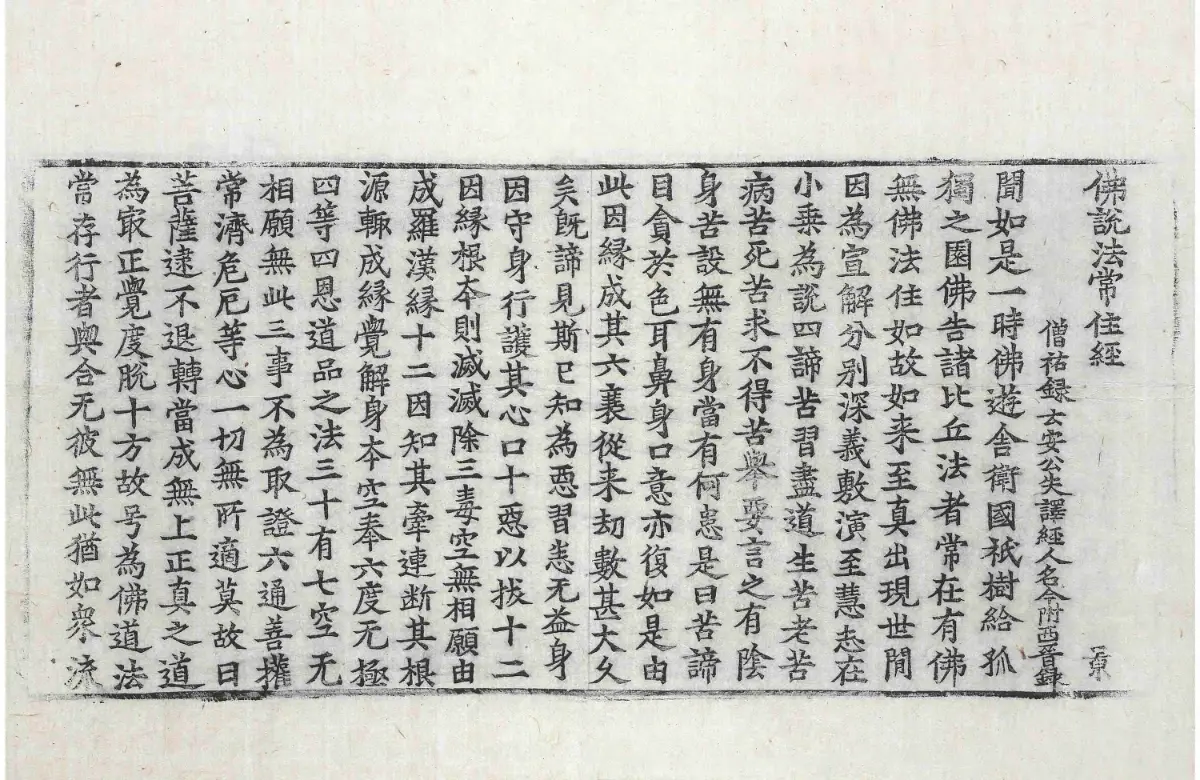 佛說法常住經
僧祐録云安公失譯經人名今附西晉録
聞如是一時佛遊舍衛國祇樹給孤
獨之園佛告諸比丘法者常在有佛
無佛法住如故如来至真出現世間
因為宣解分別深義敷演至慧志在
小乗為說四諦苦習盡道生苦老苦
病苦死苦求不得苦舉要言之有陰
身苦設無有身當有何患是曰苦諦
目貪於色耳鼻身口意亦復如是由
此因緣成其六衰從来劫數甚大久
矣旣諦見斯已知為惡習恚无益身
因守身行護其心口十惡以拔十二
因緣根本則滅滅除三毒空無相願由
成羅漢緣十二因知其牽連断其根
源輒成緣覺解身本空奉六度无極
四等四恩道品之法三十有七空无
相願無此三事不為取證六通善權
常濟危厄等心一切無所適莫故曰
菩薩逮不退轉當成無上正真之道
為冣正覺度脫十方故号為佛道法
當存行者與合无彼無此猶如衆流